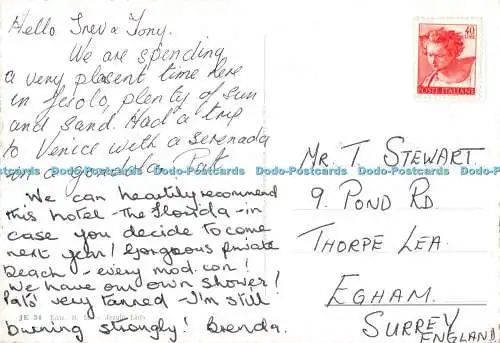 Hello Trev & Tony.
We are spending
a very plesent time here
in Jesolo, plenty of sun
and sand. Had a trip
to Venice with a serenada
on a gondola. Pat
We can heartily recommend
this hotel - The Florida - in
case you decide to come
next year! Gorgeous private
beach - every mod. con!
We have our own shower!
Pat's very tanned - I'm still
burning strongly! Brenda.
40
LIRE
POSTE ITALIANE
MR. T STEWART
9. POND RD.
THORPE LEA.
EGHAM.
SURREY
ENGLAND
Dodo-Postcards Dodo-Postcards Dodo-Postcards Dodo-Postcards
JE 34
Jesolo Lido